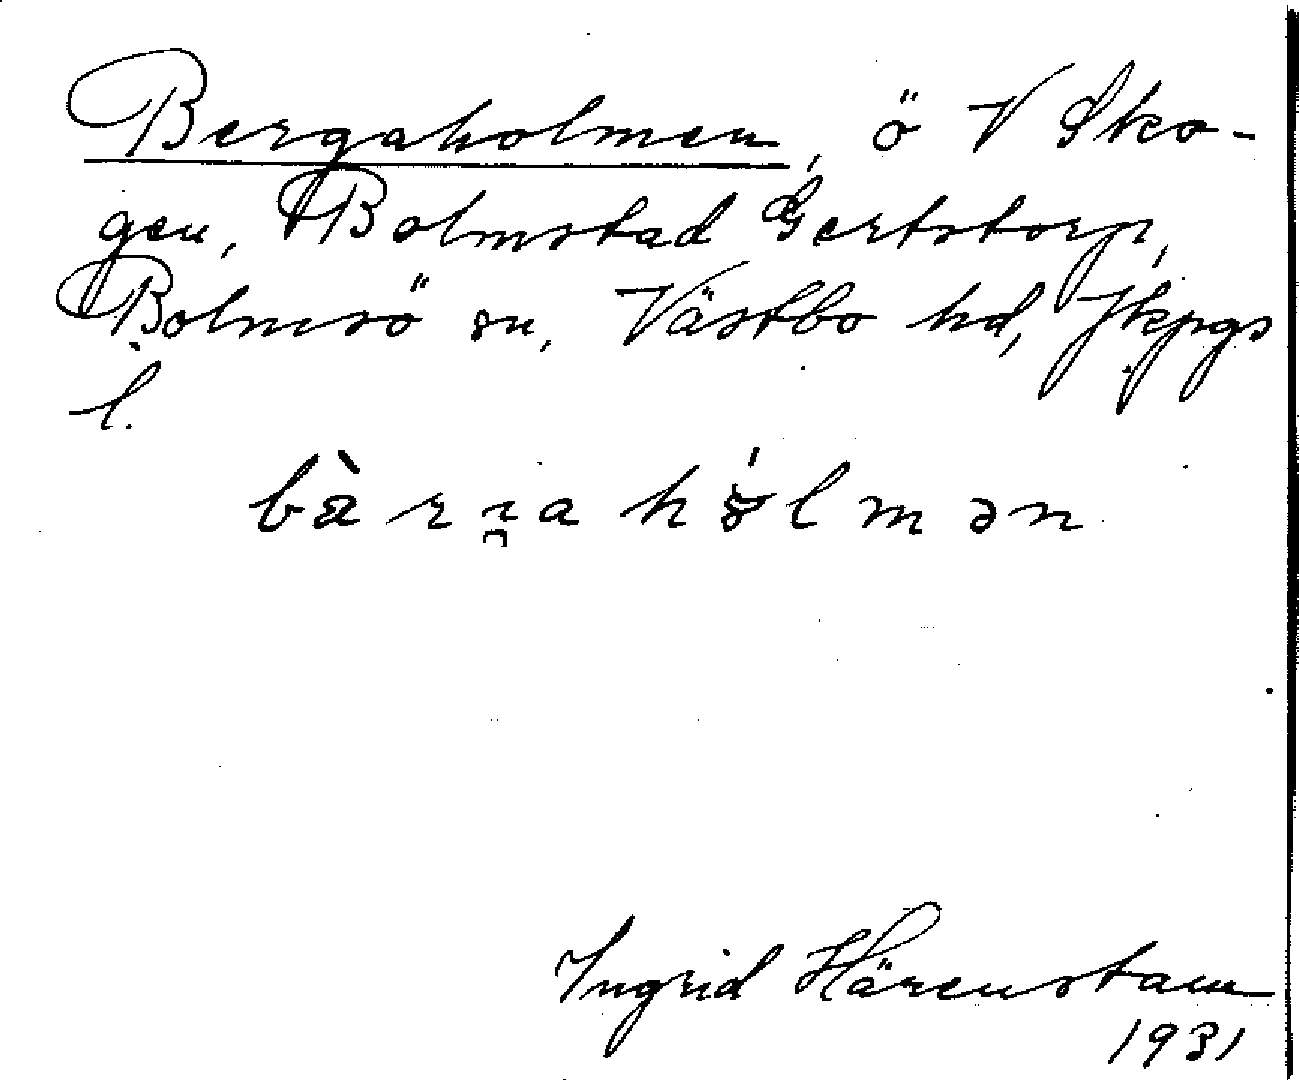 Bergaholmen, ö V Sko-
gen, Bolmstad Gertstorp,
Bolmsö sn, Västbo hd, Jkpgs
l.
bàrı̯ahólmən
Ingrid Härenstam
1931